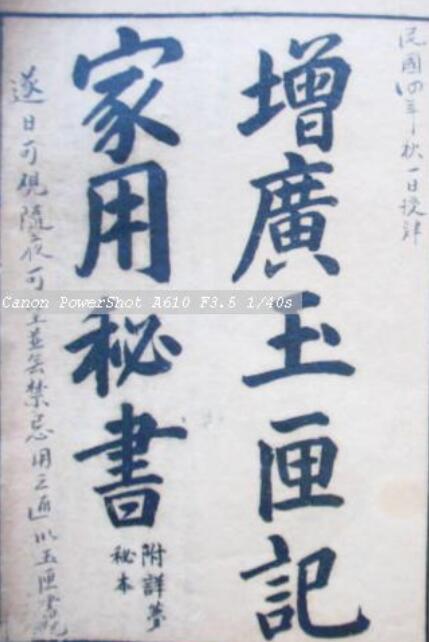 民國四年秋一日
增廣玉匣記
家用秘書
附詳夢
秘本
遂日可 隨夜可 並無禁忌用之 玉匣書
Canon PowerShot A610 F3.5 1/40s